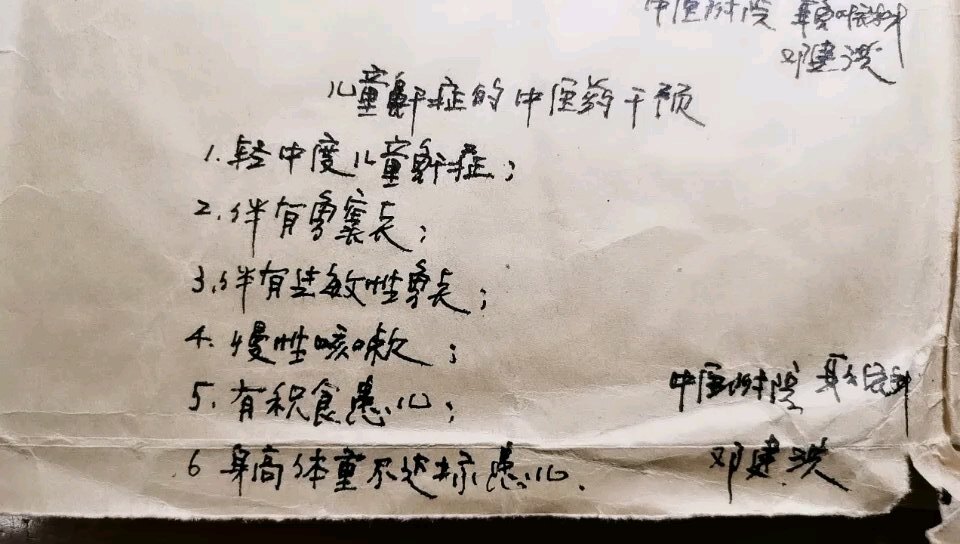 中医附院 耳鼻喉科
邓建洪
儿童鼾症的中医药干预
1. 轻中度儿童鼾症;
2. 伴有鼻窦炎;
3. 伴有过敏性鼻炎;
4. 慢性咳嗽;
5. 有积食患儿;
中医附院 耳鼻喉科
6 身高体重不达标患儿.
邓建洪